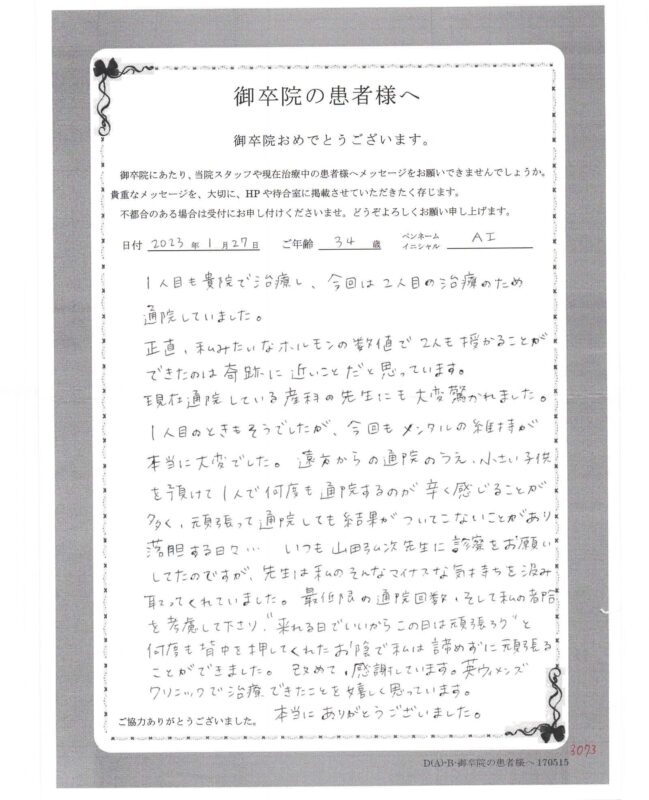 御卒院の患者様へ
御卒院おめでとうございます。
御卒院にあたり、当院スタッフや現在治療中の患者様へメッセージをお願いできませんでしょうか。
貴重なメッセージを、大切に、HPや待合室に掲載させていただきたく存じます。
不都合のある場合は受付にお申し付けくださいませ。どうぞよろしくお願い申し上げます。
日付 2023 年 1月 27日 ご年齢 34 歳 ペンネーム イニシャル AI
1人目も貴院で治療し、今回は2人目の治療のため
通院していました。
正直、私みたいなホルモンの数値で2人も授かることが
できたのは奇跡に近いことだと思っています。
現在通院している産科の先生にも大変驚かれました。
1人目のときもそうでしたが、今回もメンタルの維持が
本当に大変でした。遠方からの通院のうえ、小さい子供
を預けて1人で何度も通院するのが辛く感じることが
多く、頑張って通院しても結果がついてこないことがあり
落胆する日々… いつも山田弘次先生に診察をお願い
してたのですが、先生は私のそんなマイナスな気持ちを汲み
取ってくれていました。最低限の通院回数、そして私の都合
を考慮して下さり、"来れる日でいいからこの日は頑張ろう"と
何度も背中を押してくれたお陰で私は諦めずに頑張る
ことができました。改めて、感謝しています。英ウィメンズ
クリニックで治療できたことを嬉しく思っています。
本当にありがとうございました。
ご協力ありがとうございました。
3073
D(A)-B-御卒院の患者様へ 170515